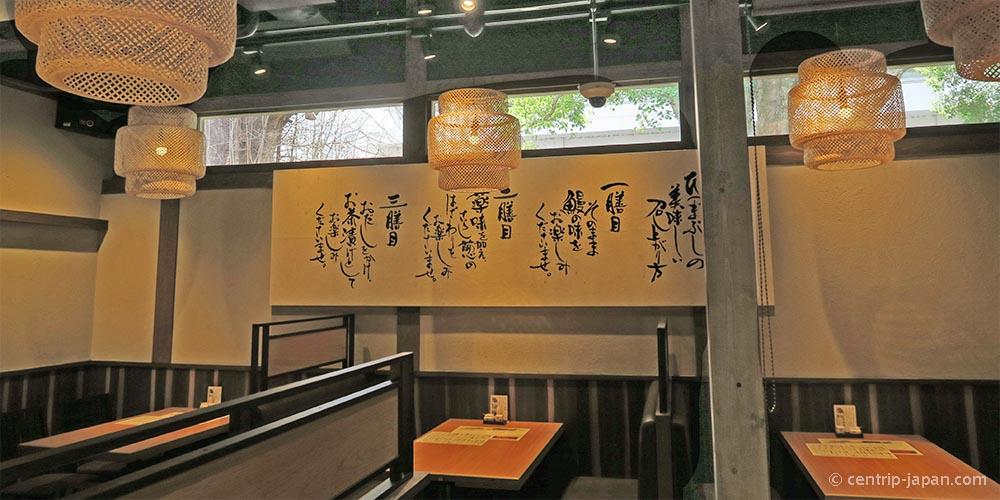 ひつまぶしの
美味しい
召し上がり方
一膳目
そのまま
鰻の味を
お楽しみ
くださいませ。
二膳目
薬味を加え
さらし葱の
はごたわりを
お楽しみ
くださいませ。
三膳目
おだしをかけ、
お茶漬けとして
お楽しみ
くださいませ。
© centrip-japan.com